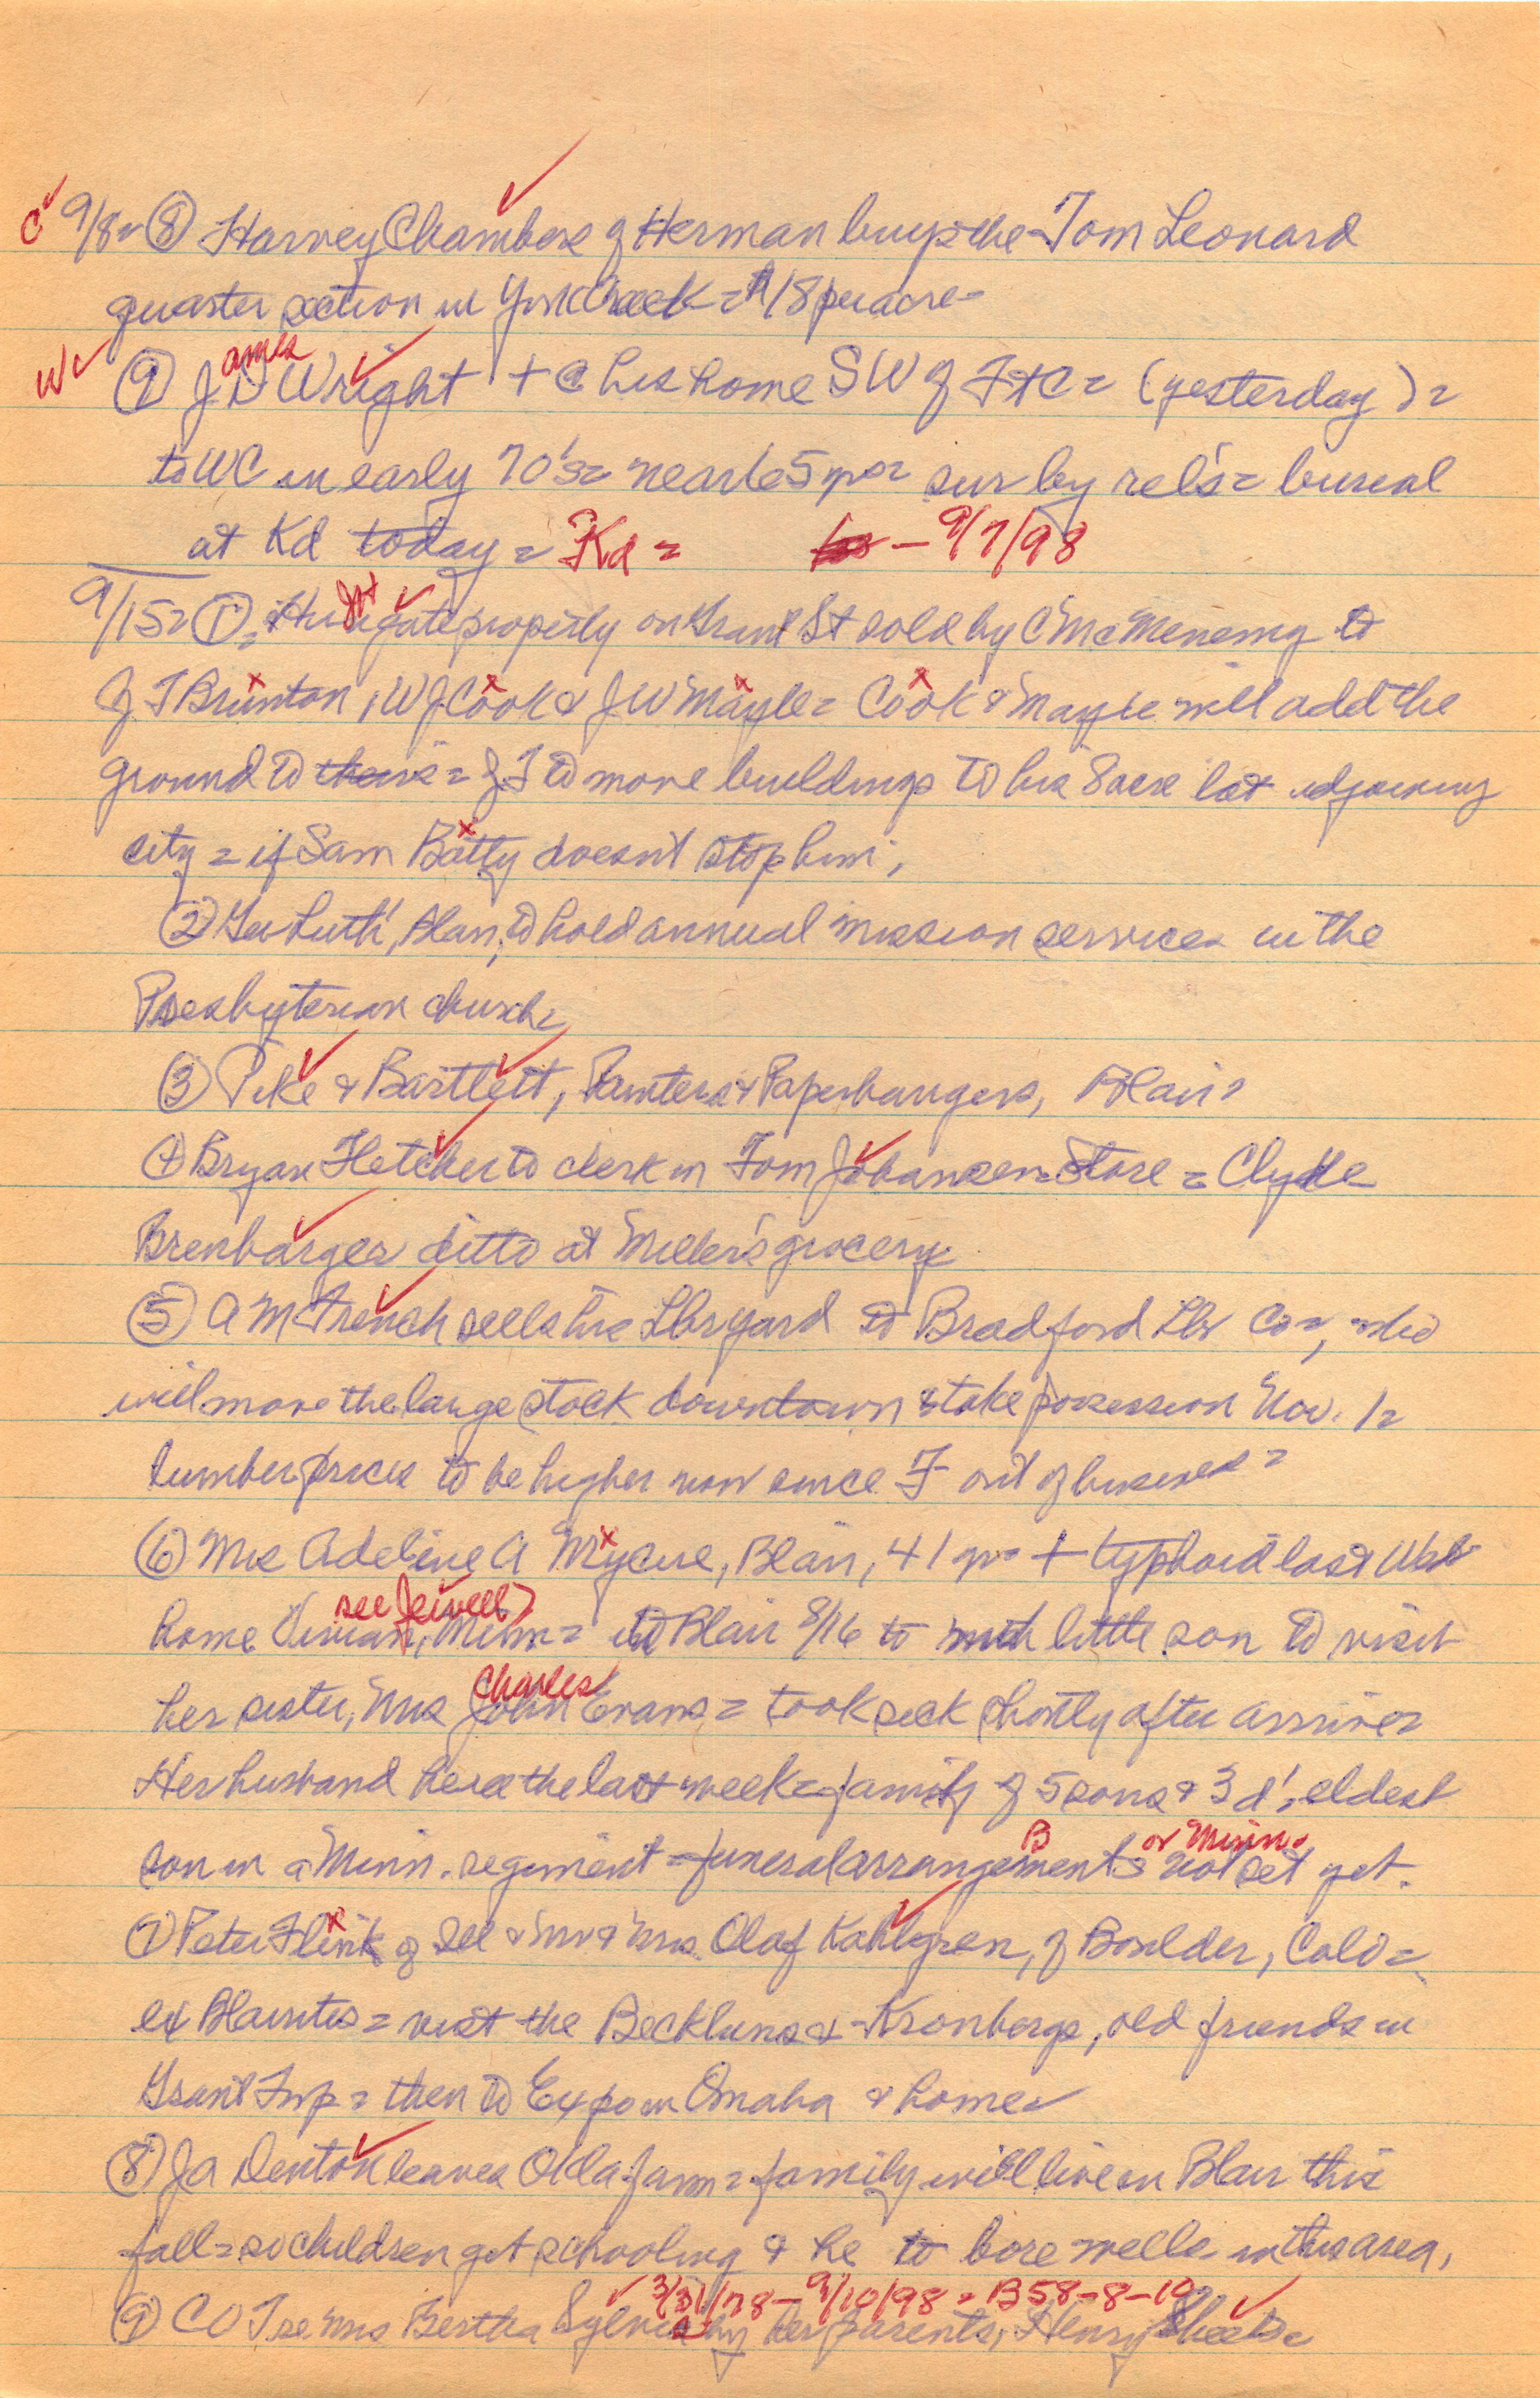 C 9/8= (8) Harvey Chambers of Herman buys the Tom Leonard
quarter section in York Creek = $18 per acre =
W (9) J D ames Wright + @ his home SW of FtC = (yesterday) =
to WC in early 70's = near 65 yrs = sur by rel's = burial
at Kd today = Kd = - 9/7/98
9/15= (1) = property on Grant St sold by C McMenemy to
J T Brunton, W J Cook & J W Mayle = Cook & Mayle will add the
ground to theirs = J T to move buildings to his 8 acre lot adjoining
city = if Sam Batty doesn't stop him,
(2) Ger Luth, Blair, to hold annual mission services in the
Presbyterian church =
(3) Pike & Bartlett, Painters & Paperhangers, Blair =
(4) Bryan Fletcher to clerk in Tom Johansen Store = Clyde
Brenbarger ditto at Miller's grocery
(5) A M French sells his Lbr yard to Bradford Lbr Co =, who
will move the large stock downtown & take possession Nov. 1 =
lumber prices to be higher now since F out of business =
(6) Mrs Adeline A Mycue, Blair, 41 yrs + typhoid last Wed
see Jewell)
home Minn = to Blair 8/16 to with little son to visit
Charles
her sister, Mrs John Evans = took sick shortly after arrive =
Her husband here the last week = family of 5 sons & 3 d', eldest
B or Minn.
son in a Minn. regiment = funeral arrangements not set yet.
(7) Peter Flink of & Mr & Mrs. Olaf Kahlgren, of Boulder, Colo =
ex Blairites = visit the Beckluns & Kronbergs, old friends in
Grant Twp = then to Expo in Omaha & home =
(8) J A Denton leaves Okla farm = family will live in Blair this
fall = so children get schooling & he to bore wells in this area,
3/31/78 - 9/10/98 = B58-8-10
(9) C O T se Mrs Bertha Sylvis by her parents, Henry Sheets =